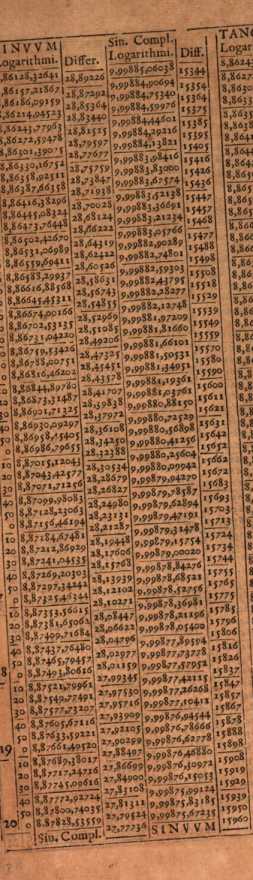 INVVM Differ. Sin. Compl. Diff. TANG
ogarithmi. Logarithmi. Logar
,86128,32641 28,89226 9,99885,06038 15344
,86157,21867 28,87292 9,99884,90694 15354
,86186,09159 28,85364 9,99884,75340 15364
,86214,94523 28,83440 9,99884,59976 15375
,86243,77963 28,81515 9,99884,44601 15385
,86272,59478 28,79597 9,99884,29216 15395
8,86301,39075 28,77677 9,99884,13821 15405
8,86330,16752 28,75759 9,99883,98416 15416
8,86358,92511 28,73847 9,99883,83000 15426
8,86387,66358 28,71938 9,99883,67574 15436
8,86416,38296 28,70028 9,99883,52138 15447
8,86445,08324 28,68124 9,99883,36691 15457
8,86473,76448 28,66222 9,99883,21234 15468
8,86502,42670 28,64319 9,99883,05766 15477
8,86531,06989 28,62422 9,99882,90289 15488
8,86559,69411 28,60526 9,99882,74801 15498
8,86588,29937 28,58631 9,99882,59303 15508
8,86616,88568 28,56743 9,99882,43795 15518
8,86645,45311 28,54855 9,99882,28277 15529
8,86674,00166 28,52969 9,99882,12748 15539
8,86702,53135 28,51085 9,99881,97209 15549
8,86731,04220 28,49206 9,99881,81660 15559
8,86759,53426 28,47325 9,99881,66101 15570
8,86788,00751 28,45451 9,99881,50531 15580
8,86816,46202 28,43578 9,99881,34951 15590
8,86844,89780 28,41707 9,99881,19361 15600
8,86873,31487 28,39838 9,99881,03761 15611
8,86901,71325 28,37972 9,99880,88150 15621
8,86930,09297 28,36108 9,99880,72529 15631
8,86958,45405 28,34250 9,99880,56898 15642
8,86986,79655 28,32388 9,99880,41256 15652
10 8,87015,12043 28,30534 9,99880,25604 15662
20 8,87043,42577 28,28679 9,99880,09942 15672
30 8,87071,71256 28,26827 9,99879,94270 15683
40 8,87099,98083 28,24980 9,99879,78587 15693
50 8,87128,23063 28,23131 9,99879,62894 15703
0 8,87156,46194 28,21287 9,99879,47191 15713
10 8,87184,67481 28,19448 9,99879,31478 15724
20 8,87212,86929 28,17606 9,99879,15754 15734
30 8,87241,04535 28,15768 9,99879,00020 15744
40 8,87269,20303 28,13939 9,99878,84276 15754
50 8,87297,34242 28,12102 9,99878,68521 15765
0 8,87325,46344 28,10271 9,99878,52756 15775
10 8,87353,56615 28,08447 9,99878,36981 15785
20 8,87381,65062 28,06622 9,99878,21196 15796
30 8,87409,71684 28,04796 9,99878,05400 15806
40 8,87437,76480 28,02977 9,99877,89594 15816
50 8,87465,79457 28,01159 9,99877,73778 15826
8 0 8,87493,80616 27,99345 9,99877,57952 15837
10 8,87521,79961 27,97530 9,99877,42115 15847
20 8,87549,77491 27,95716 9,99877,26268 15857
30 8,87577,73207 27,93909 9,99877,10411 15867
40 8,87605,67116 27,92105 9,99876,94544 15878
50 8,87633,59221 27,90299 9,99876,78666 15888
19 0 8,87661,49520 27,88497 9,99876,62778 15898
10 8,87689,38017 27,86699 9,99876,46880 15908
20 8,87717,24716 27,84900 9,99876,30972 15919
30 8,87745,09616 27,83108 9,99876,15053 15929
40 8,87772,92724 27,81312 9,99875,99124 15939
50 8,87800,74036 27,79524 9,99875,83185 15950
20 0 8,87828,53559 27,77736 9,99875,67235 15960
Sin. Compl. SINVVM